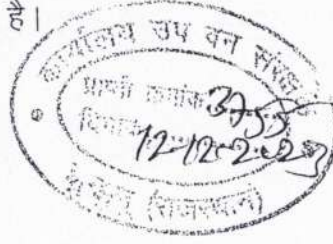 है।
कार्यालय उप वन संरक्षक
प्राप्ति क्रमांक 3755
दिनांक 12-12-2023
(राजस्थान)